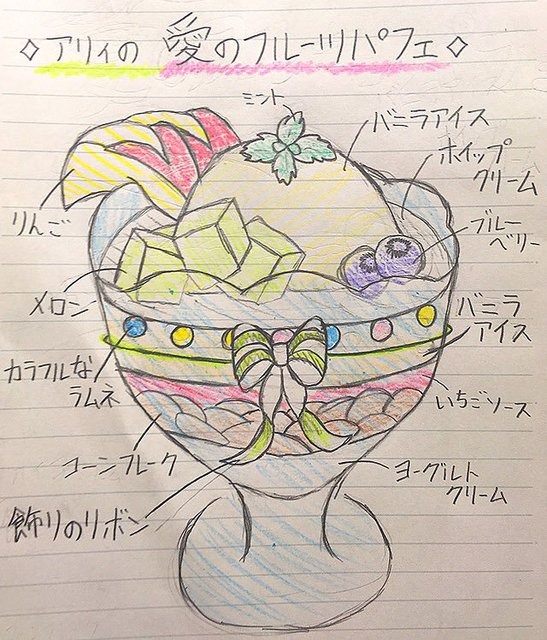 ◇アリィの 愛のフルーツパフェ◇
ミント
バニラアイス
ホイップ
クリーム
りんご
ブルー
ベリー
メロン
バニラ
アイス
カラフルな
ラムネ
いちごソース
コーンフレーク
ヨーグルト
クリーム
飾りのリボン